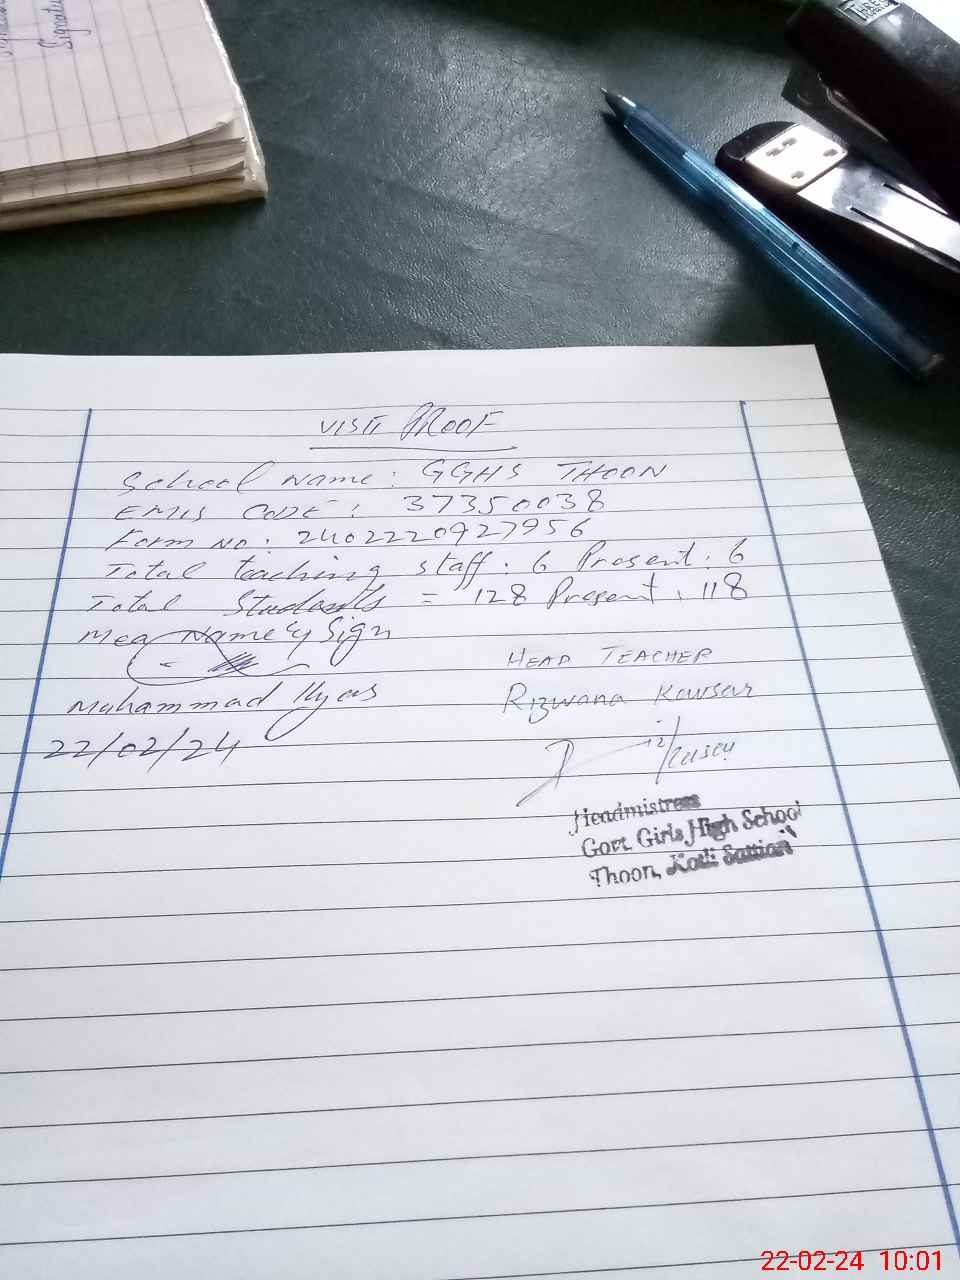 Signatu
THREE
VISIT PROOF
School Name: GGHS THOON
EMIS CODE: 37350038
Form No: 2402220927956
Total teaching staff: 6 Present: 6
Total Students = 128 Present: 118
Mea Name & Sign
HEAD TEACHER
Muhammad Ilyas
Rizwana Kawsar
22/02/24
Headmistress
Govt. Girls High School
Thoon, Kotli Sattian
22-02-24 10:01